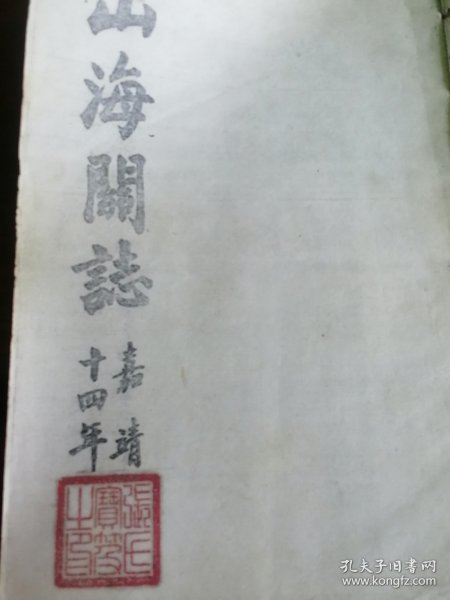 山海關誌
嘉靖
十四年
張氏
寶芩
之印
孔夫子旧书网
www.kongfz.com